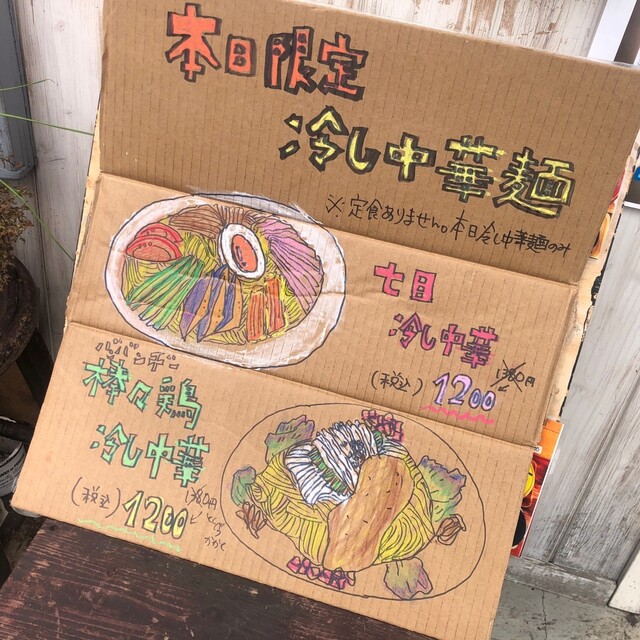 本日限定
冷し中華麺
※定食ありません。本日冷し中華麺のみ
七目
冷し中華
1380円
(税込) 1200
バンバンヂー
棒々鶏
冷し中華
1380円
(税込) 1200